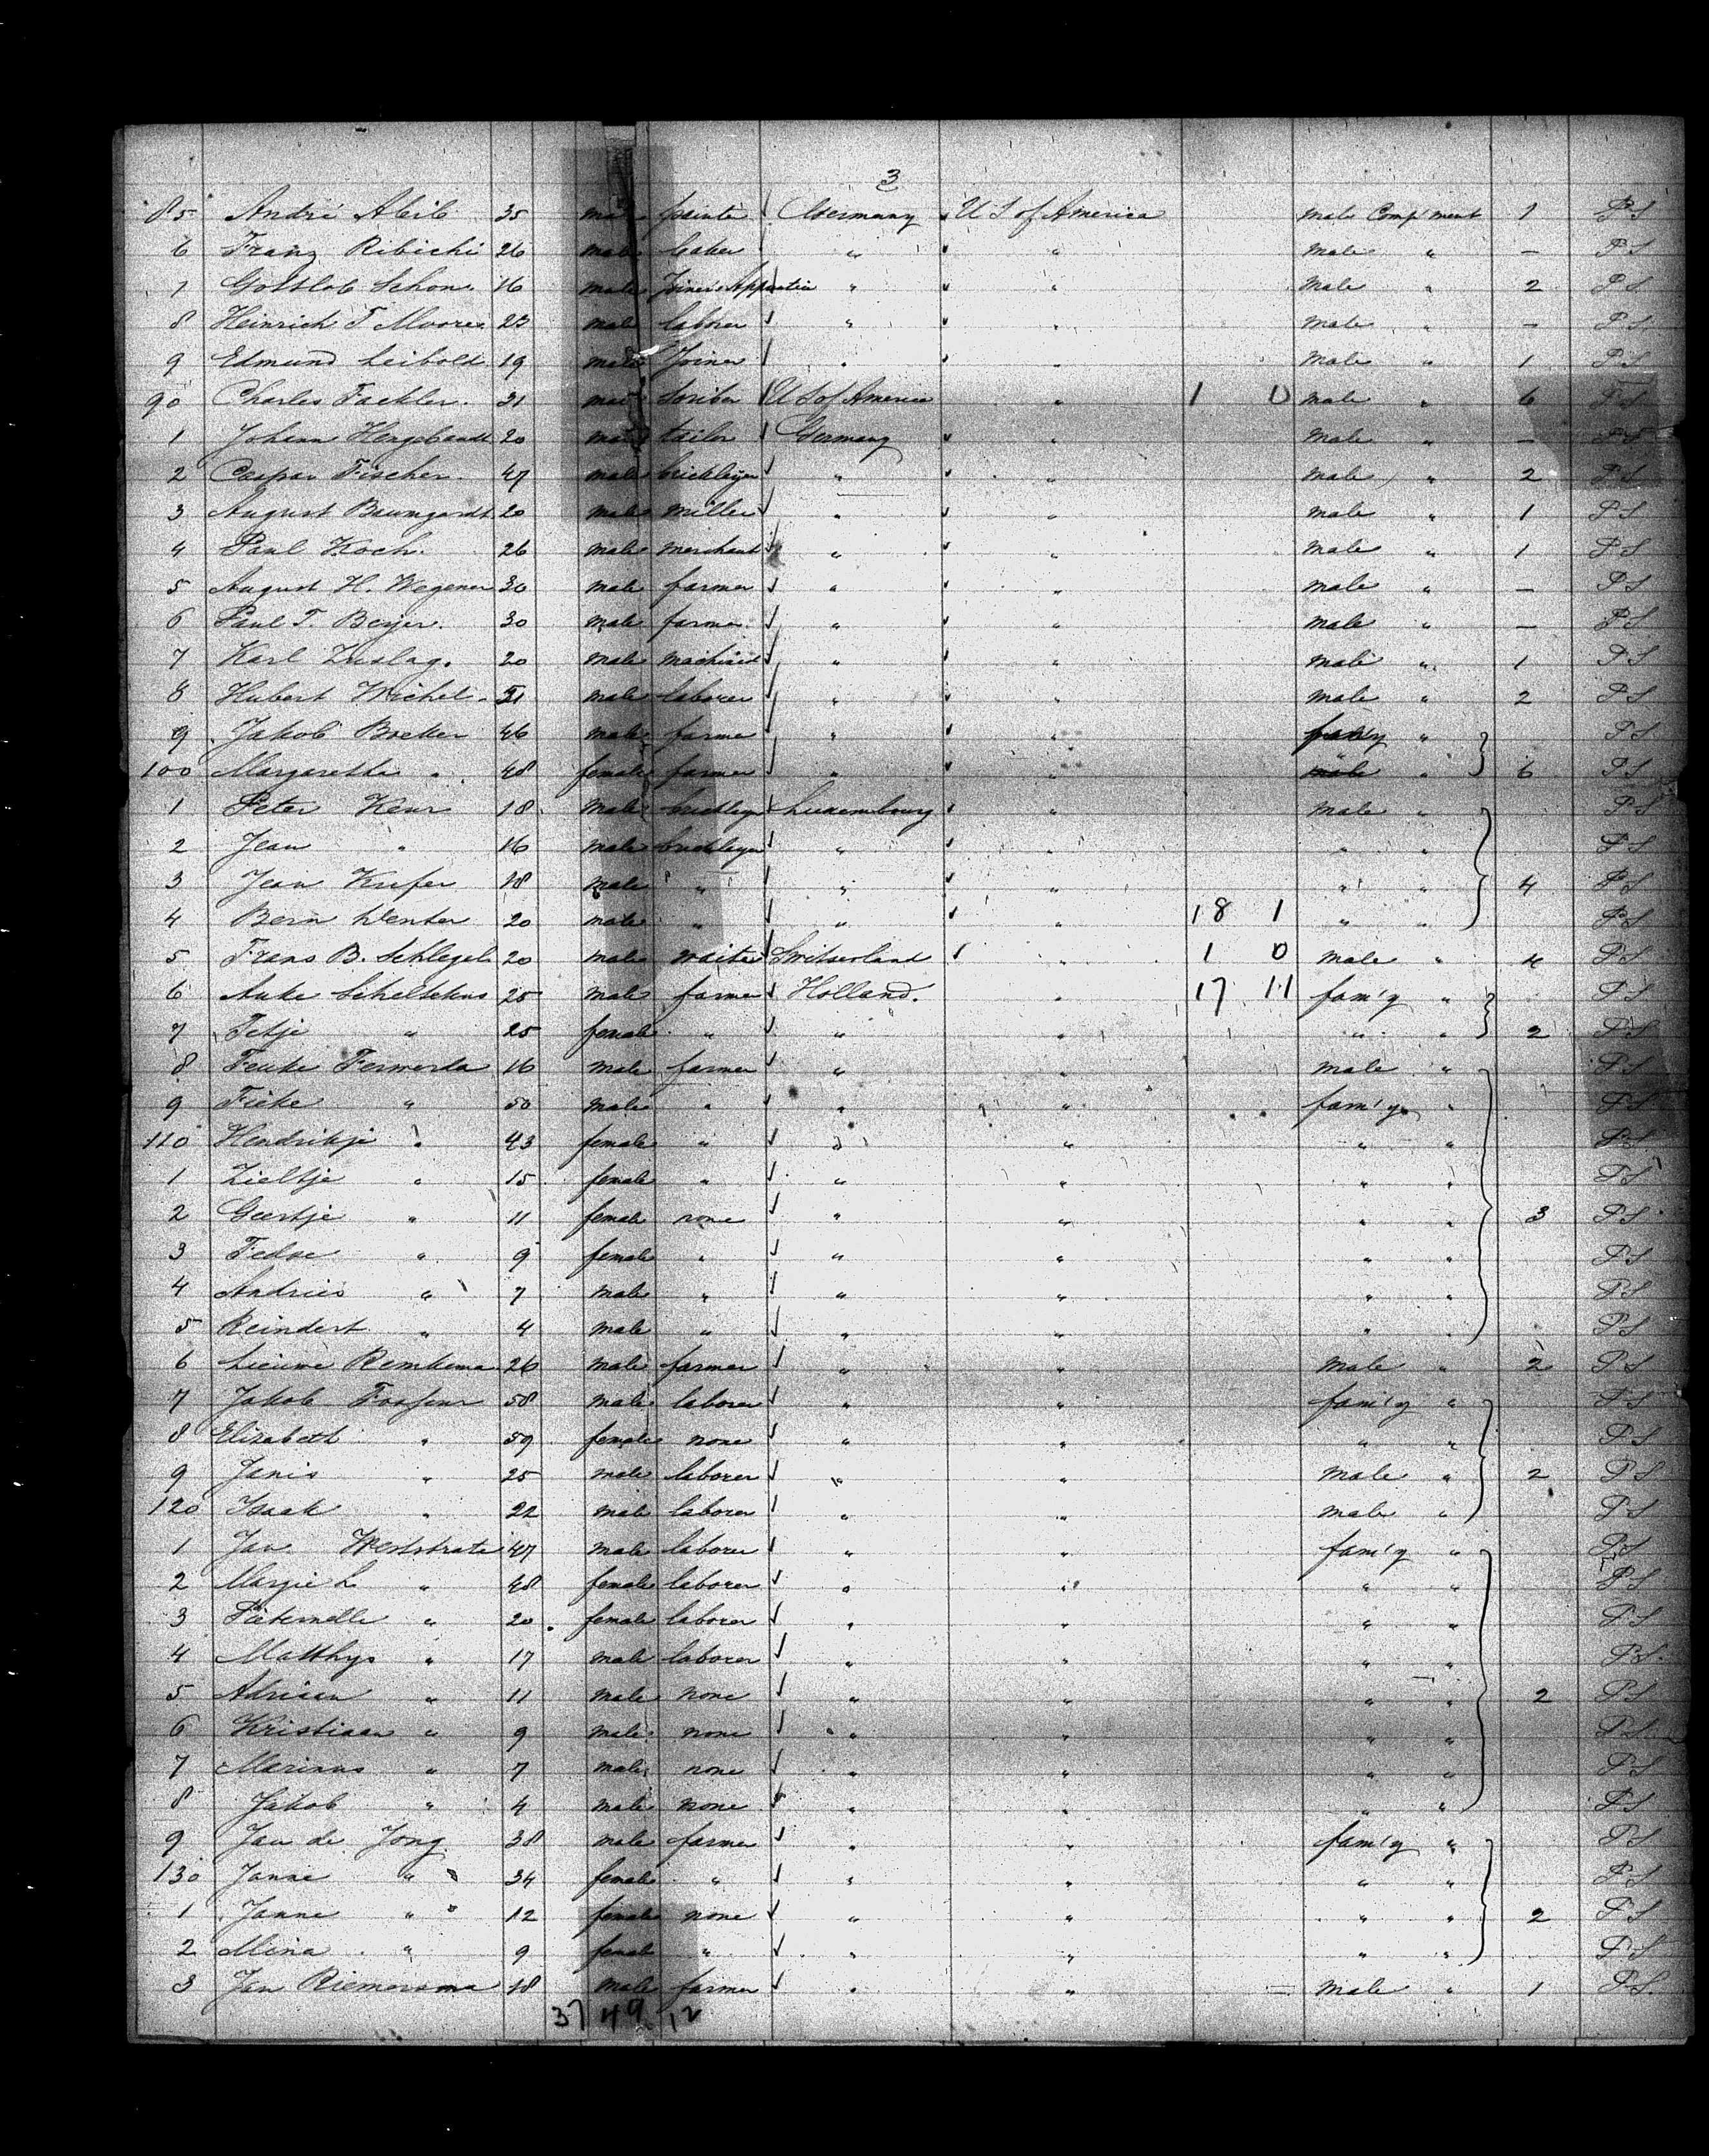 3
85 André 35 male painter Germany U S of America male Comp'ment 1 P S
6 Franz Ribichi 26 male baker " " male " — P S
7 Gottlob Schon 16 male Joiner's " " male " 2 P S
8 Heinrich T Moores 23 male laborer " " male " — P S
9 Edmund Leibold 19 male Joiner " " male " 1 P S
90 Charles Fackler. 31 male Scriber U S of America " 1 0 male " 6 P S
1 Johann 20 male tailor Germany " male " — P S
2 Caspar Fischer. 47 male bricklayer " " male " 2 P S
3 August Baumgardt 20 male miller " " male " 1 P S
4 Paul Koch. 26 male merchant " " male " 1 P S
5 August H. Wegener 30 male farmer " " male " — P S
6 Paul T. Beyer. 30 male farmer " " male " — P S
7 Karl Zuslag. 20 male machinist " " male " 1 P S
8 Hubert Michel 51 male laborer " " male " 2 P S
9 Jakob Boeker 46 male farmer " " fam'y " P S
100 Margaretha " 48 female farmer " " " 6 P S
1 Peter 18 male bricklayer Luxembourg " male " P S
2 Jean " 16 male bricklayer " " " " P S
3 Jean Kiefer 18 male " " " " " 4 P S
4 Bern Wenter 20 male " " " 18 1 " " P S
5 Frans B. Schlegel 20 male waiter Switserland " 1 0 male " 4 P S
6 Auke 25 male farmer Holland. " 17 11 fam'y " P S
7 Tetje " 25 female " " " " " 2 P S
8 Feuke 16 male farmer " " male " P S
9 Fieke " 50 male " " " fam'y " P S
110 Hendrikje " 43 female " " " " " P S
1 Zieltje " 15 female " " " " " P S
2 Geertje " 11 female none " " " " 3 P S
3 " 9 female " " " " " P S
4 Andries " 7 male " " " " " P S
5 Reindert " 4 male " " " " " P S
6 Lieuwe Remkema 26 male farmer " " male " 2 P S
7 Jakob 58 male laborer " " fam'y " P S
8 Elizabeth " 59 female none " " " " P S
9 Janis " 25 male laborer " " male " 2 P S
120 Isaak " 22 male laborer " " male " P S
1 Jan Weststrate 47 male laborer " " fam'y " P S
2 " 48 female laborer " " " " P S
3 Pieternelle " 20 female laborer " " " " P S
4 Matthys " 17 male laborer " " " " P S
5 Adriaan " 11 male none " " " " 2 P S
6 Kristiaan " 9 male none " " " " P S
7 Marinus " 7 male none " " " " P S
8 Jakob " 4 male none " " " " P S
9 Jan de Jong 38 male farmer " " fam'y " P S
130 Janne " 34 female " " " " " P S
1 Janne " 12 female none " " " " 2 P S
2 Mina " 9 female " " " " " P S
3 Jan Riemersma 18 male farmer " " male " 1 P S
37 49 12